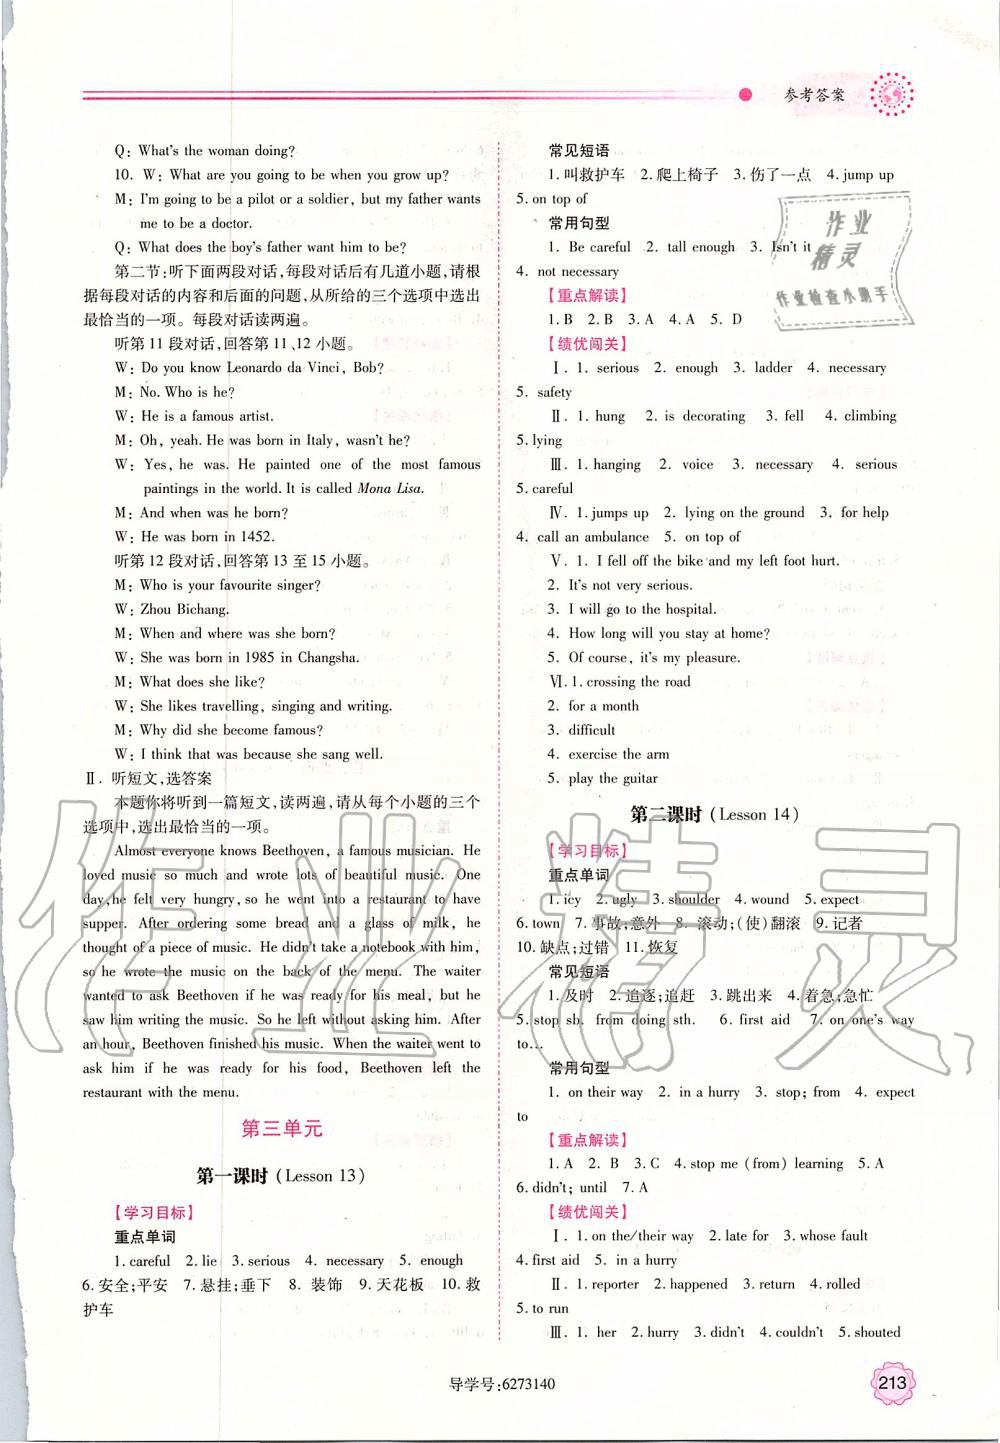 参考答案
Q: What's the woman doing?
10. W: What are you going to be when you grow up?
M: I'm going to be a pilot or a soldier, but my father wants
me to be a doctor.
Q: What does the boy's father want him to be?
第二节:听下面两段对话,每段对话后有几道小题,请根
据每段对话的内容和后面的问题,从所给的三个选项中选出
最恰当的一项。每段对话读两遍。
听第 11 段对话,回答第 11、12 小题。
W: Do you know Leonardo da Vinci, Bob?
M: No. Who is he?
W: He is a famous artist.
M: Oh, yeah. He was born in Italy, wasn't he?
W: Yes, he was. He painted one of the most famous
paintings in the world. It is called Mona Lisa.
M: And when was he born?
W: He was born in 1452.
听第 12 段对话,回答第 13 至 15 小题。
M: Who is your favourite singer?
W: Zhou Bichang.
M: When and where was she born?
W: She was born in 1985 in Changsha.
M: What does she like?
W: She likes travelling, singing and writing.
M: Why did she become famous?
W: I think that was because she sang well.
Ⅱ. 听短文,选答案
本题你将听到一篇短文,读两遍,请从每个小题的三个
选项中,选出最恰当的一项。
Almost everyone knows Beethoven, a famous musician. He
loved music so much and wrote lots of beautiful music. One
day,he felt very hungry,so he went into a restaurant to have
supper. After ordering some bread and a glass of milk, he
thought of a piece of music. He didn't take a notebook with him,
so he wrote the music on the back of the menu. The waiter
wanted to ask Beethoven if he was ready for his meal, but he
saw him writing the music. So he left without asking him. After
an hour, Beethoven finished his music. When the waiter went to
ask him if he was ready for his food, Beethoven left the
restaurant with the menu.
第三单元
第一课时 (Lesson 13)
【学习目标】
重点单词
1. careful 2. lie 3. serious 4. necessary 5. enough
6. 安全;平安 7. 悬挂;垂下 8. 装饰 9. 天花板 10. 救
护车
常见短语
1. 叫救护车 2. 爬上椅子 3. 伤了一点 4. jump up
5. on top of
常用句型
1. Be careful 2. tall enough 3. Isn't it
4. not necessary
【重点解读】
1. B 2. B 3. A 4. A 5. D
【绩优闯关】
Ⅰ. 1. serious 2. enough 3. ladder 4. necessary
5. safety
Ⅱ. 1. hung 2. is decorating 3. fell 4. climbing
5. lying
Ⅲ. 1. hanging 2. voice 3. necessary 4. serious
5. careful
Ⅳ. 1. jumps up 2. lying on the ground 3. for help
4. call an ambulance 5. on top of
Ⅴ. 1. I fell off the bike and my left foot hurt.
2. It's not very serious.
3. I will go to the hospital.
4. How long will you stay at home?
5. Of course, it's my pleasure.
Ⅵ. 1. crossing the road
2. for a month
3. difficult
4. exercise the arm
5. play the guitar
第二课时 (Lesson 14)
【学习目标】
重点单词
1. icy 2. ugly 3. shoulder 4. wound 5. expect
6. town 7. 事故;意外 8. 滚动;(使)翻滚 9. 记者
10. 缺点;过错 11. 恢复
常见短语
1. 及时 2. 追逐;追赶 3. 跳出来 4. 着急;急忙
5. stop sb. from doing sth. 6. first aid 7. on one's way
to...
常用句型
1. on their way 2. in a hurry 3. stop; from 4. expect
to
【重点解读】
1. A 2. B 3. C 4. stop me (from) learning 5. A
6. didn't; until 7. A
【绩优闯关】
Ⅰ. 1. on the/their way 2. late for 3. whose fault
4. first aid 5. in a hurry
Ⅱ. 1. reporter 2. happened 3. return 4. rolled
5. to run
Ⅲ. 1. her 2. hurry 3. didn't 4. couldn't 5. shouted
作业
精灵
作业检查小助手
作业精灵
导学号:6273140
213